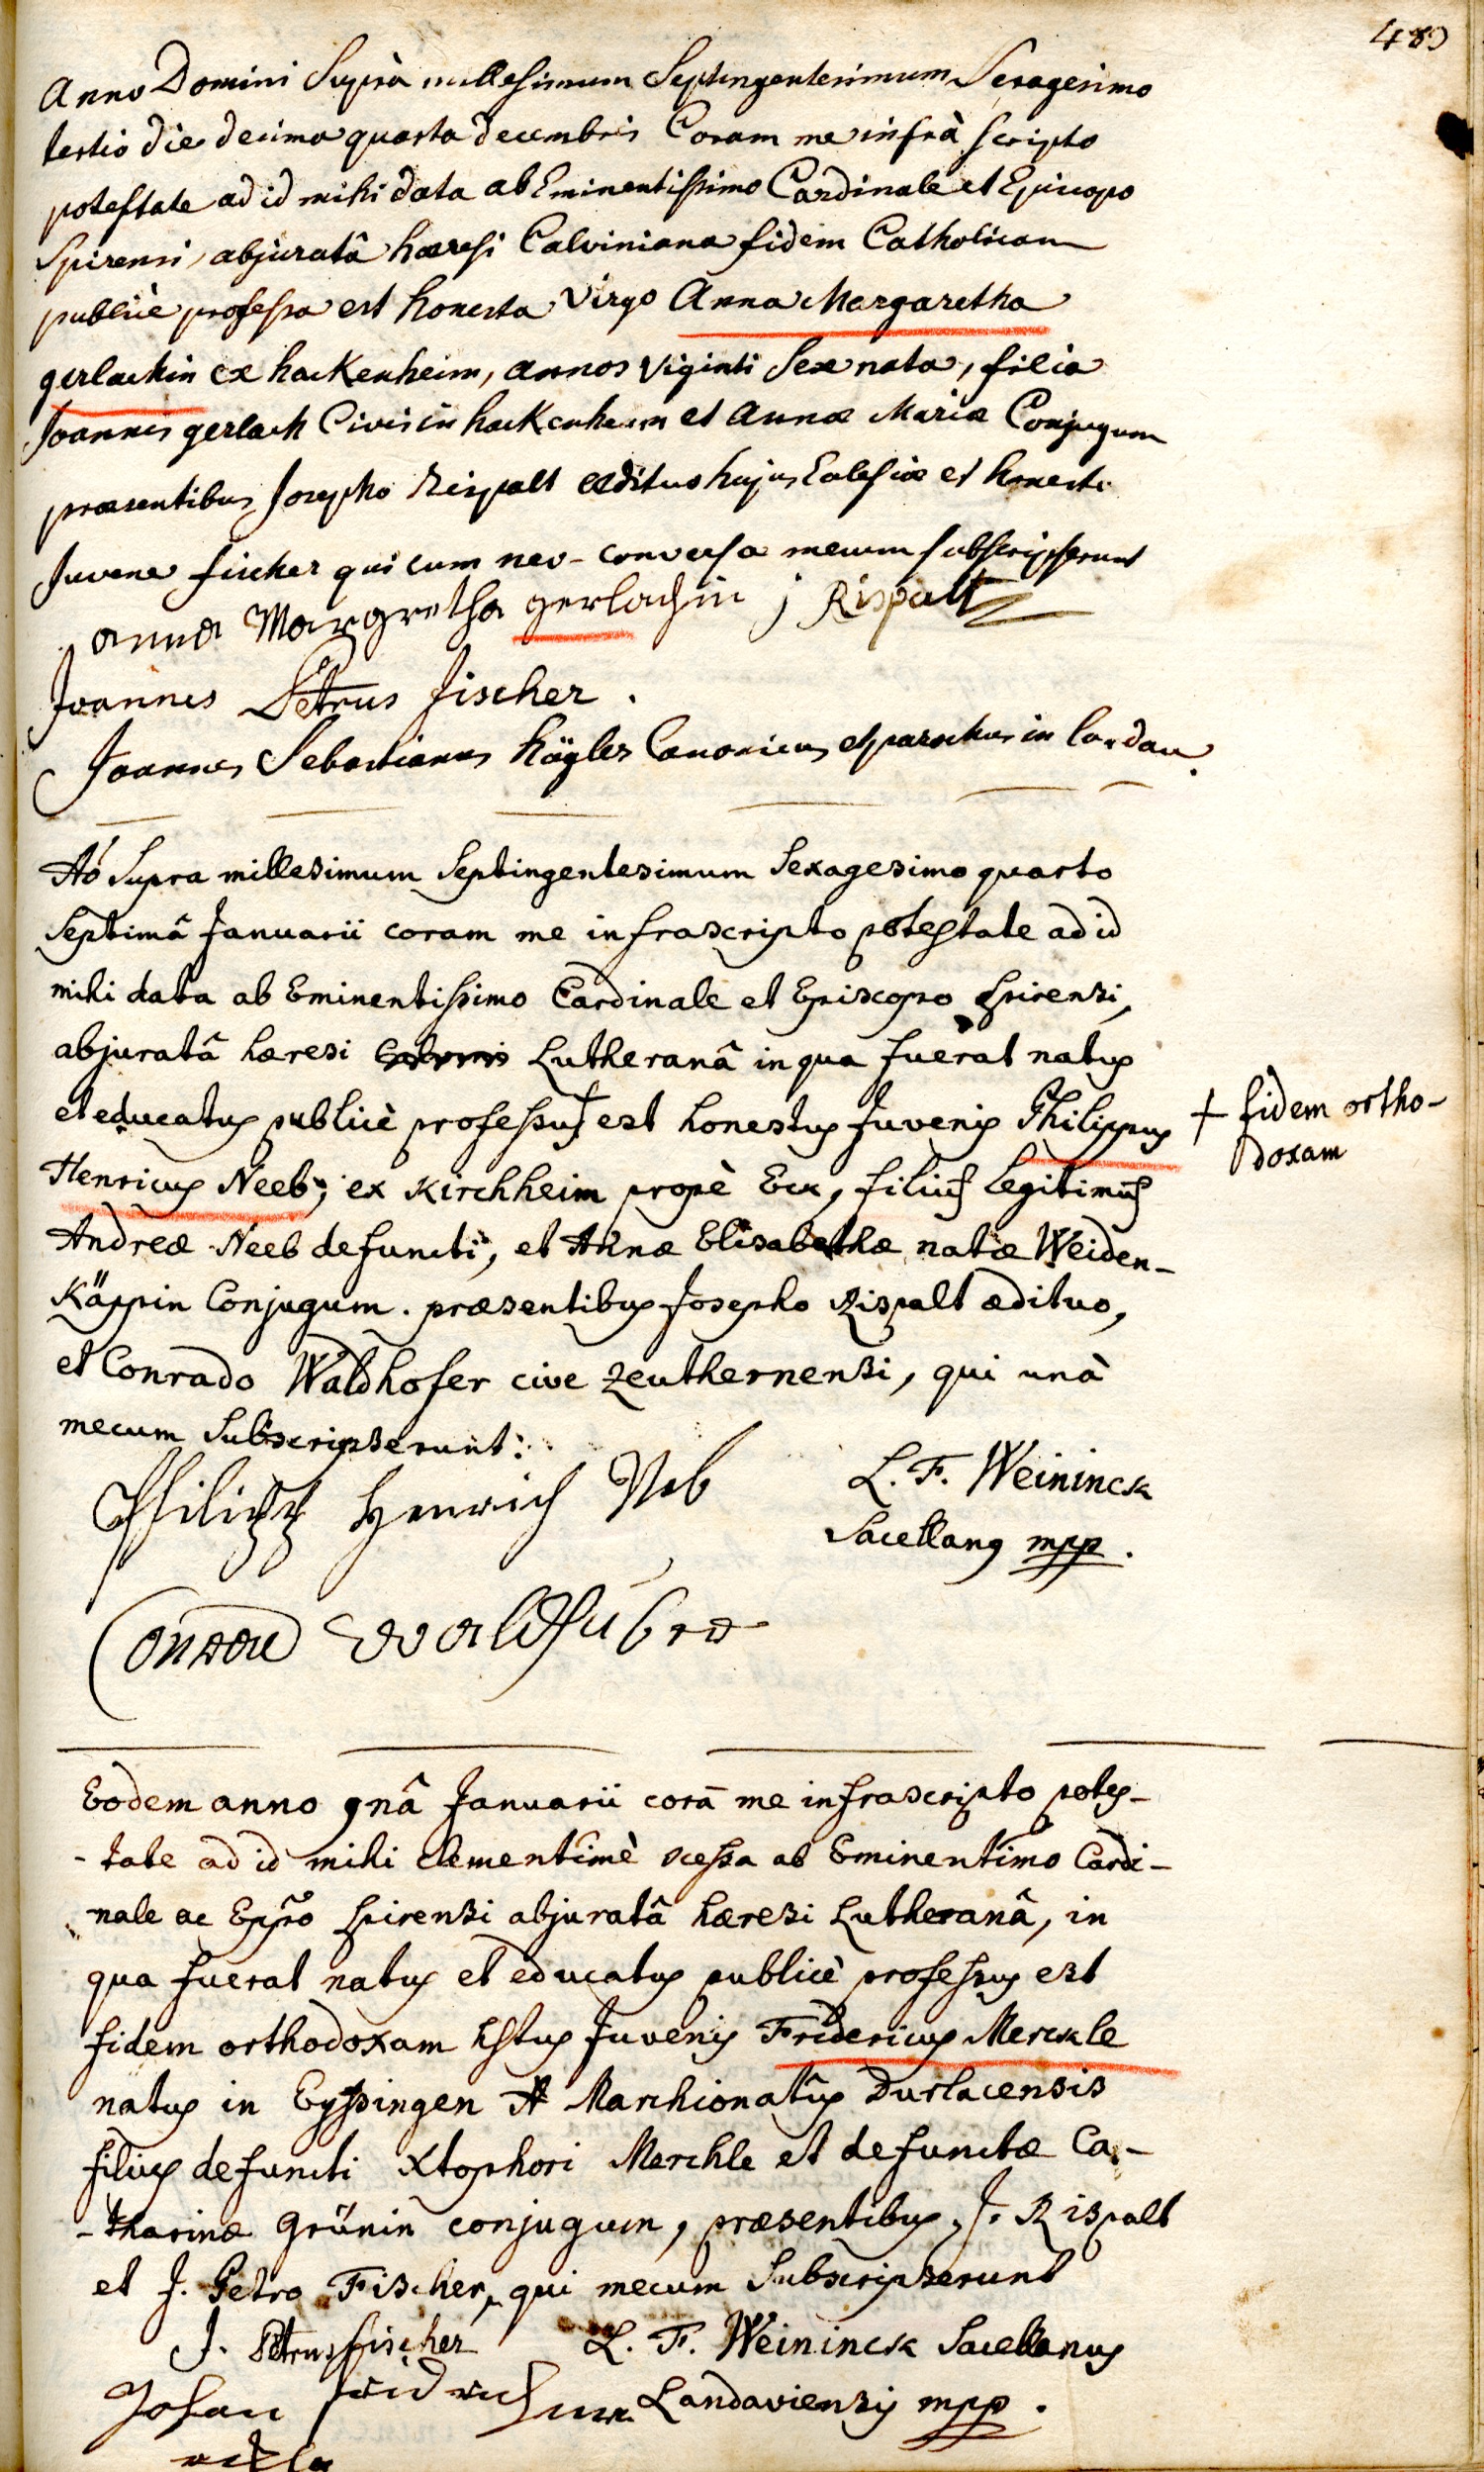 489
Anno Domini Suprà millesimum Septingentesimum Sexagesimo
tertio die decima quarta decembris Coram me infrà scripto
potestate ad id mihi data ab Eminentissimo Cardinale et Episcopo
Spirensi, abjuratâ haeresi Calviniana fidem Catholicam
publicè professa est honesta Virgo Anna Margaretha
gerlachin ex hackenheim, annos viginti Sex nata, filia
Joannis gerlach Civis in hackenheim et annæ Mariæ Conjugum
præsentibus Josepho Rispalt ædituo hujus Eclesiæ et honesto
Juvene fischer qui cum neo-conversa mecum subscripserunt
anna Margretha gerlachin j Rispalt
Joannes Petrus Fischer.
Joannes Sebastianus Högler Canonicus et parochus in Landau.
Aō Supra millesimum Septingentesimum Sexagesimo quarto
Septimâ Januarii coram me infrascripto potestate ad id
mihi data ab Eminentissimo Cardinale et Episcopo Spirensi,
abjuratâ hæresi Lutheranâ in qua fuerat natus
et educatus publicè professus + est honestus Juvenis Philippus
+ fidem ortho-
doxam
Henricus Neeb, ex Kirchheim propè Eck, filius Legitimus
Andreæ Neeb defuncti, et Annæ Elisabethæ natæ Weiden-
Käppin Conjugum. præsentibus Josepho Rispalt ædituo,
et Conrado Waldhofer cive Zeuthernensi, qui unà
mecum Subscripserunt:
Philipp Henrich Neb
L. F. Weininck
Sacellanus mpp.
Conrad
Eodem anno 9nâ Januarii corā me infrascripto potes-
-tate ad id mihi clementimè ocessa ab Eminentimo Cardi-
nale ac Eppō Spirensi abjuratâ hæresi Lutheranâ, in
qua fuerat natus et educatus publicè professus est
fidem orthodoxam hstus Juvenis Fridericus Merckle
natus in Eyssingen Marchionatûs Durlacensis
filius defuncti Xtophori Merckle et defunctæ Ca-
-tharinæ Grünin conjugum, præsentibus J. Rispalt
et J. Petro Fischer, qui mecum Subscripserunt
J. Petrus fischer L. F. Weininck Sacellanus
Johan fridrich Landaviensis mpp.